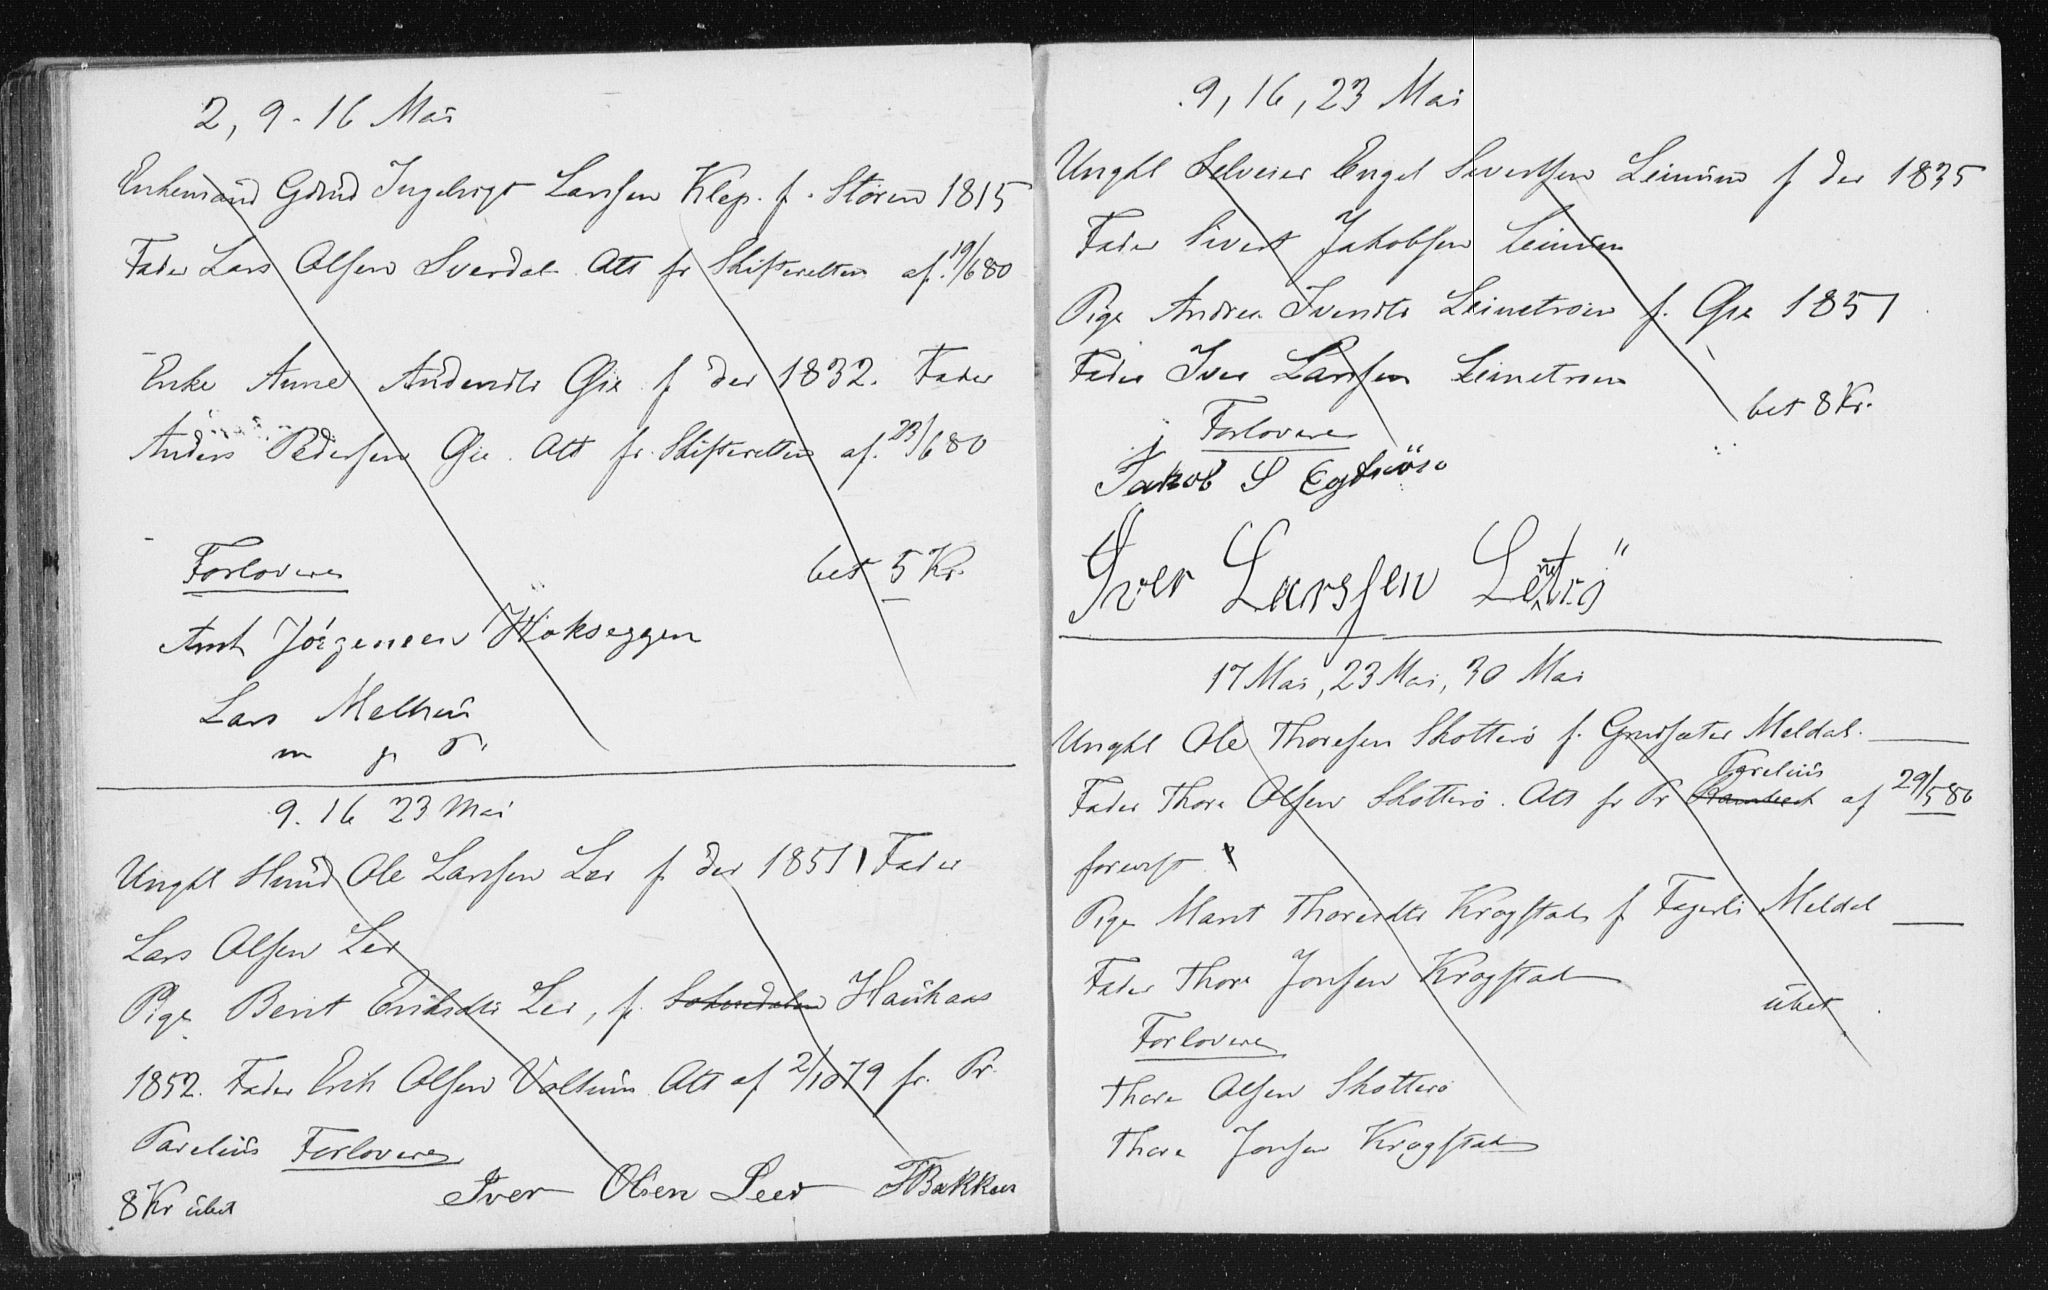 2, 9 - 16 Mai
Enkemand Gdmd Ingebrigt Larssen Klep. f. Støren 1815
Fader Lars Olsen Sverdal. Att fr Skifteretten af 19/6 80
Enke Anne Andersdtr Gie f der 1832. Fader
Anders Pedersen Gie. Att fr. Skifteretten af. 23/6 80
Forlovere
bet 5 Kr.
Arnt Jörgensen Hokseggen
Lars Melhuus
m p r
9. 16 23 Mai
Ungkl Smed Ole Larssen Ler f der 1851 Fader
Lars Olsen Ler
Pige Berit Eriksdtr Ler, f. Soknedalen Haukaas
1852. Fader Erik Olsen Valhuus Att af 2/10 79 fr. Pr.
Parelius Forlovere
Iver Olsen Leer FBakken
8 Kr ubet
9, 16, 23 Mai
Ungkl Selveier Engel Sivertsen Leinum f der 1835
Fader Sivert Jakobsen Leinum
Pige Andrea Iversdtr Leinetrøen f. Gie 1851
Fader Iver Larssen Leinetrøen
bet 8 Kr.
Forlovere
Jakob S
Iver Larssen Leinetrö
17 Mai, 23 Mai, 30 Mai
Ungkl Ole Thoresen Skotterø f. Grutsæter Meldal.
Parelius
Fader Thore Olsen Skotterø. Att fr Pr af 29/5 80
forevist
Pige Marit Thoresdtr Krogstad f Fagerli Meldal
Fader Thore Jonsen Krogstad
ubet
Forlovere
Thore Olsen Skotterø
Thore Jonsen Krogstad